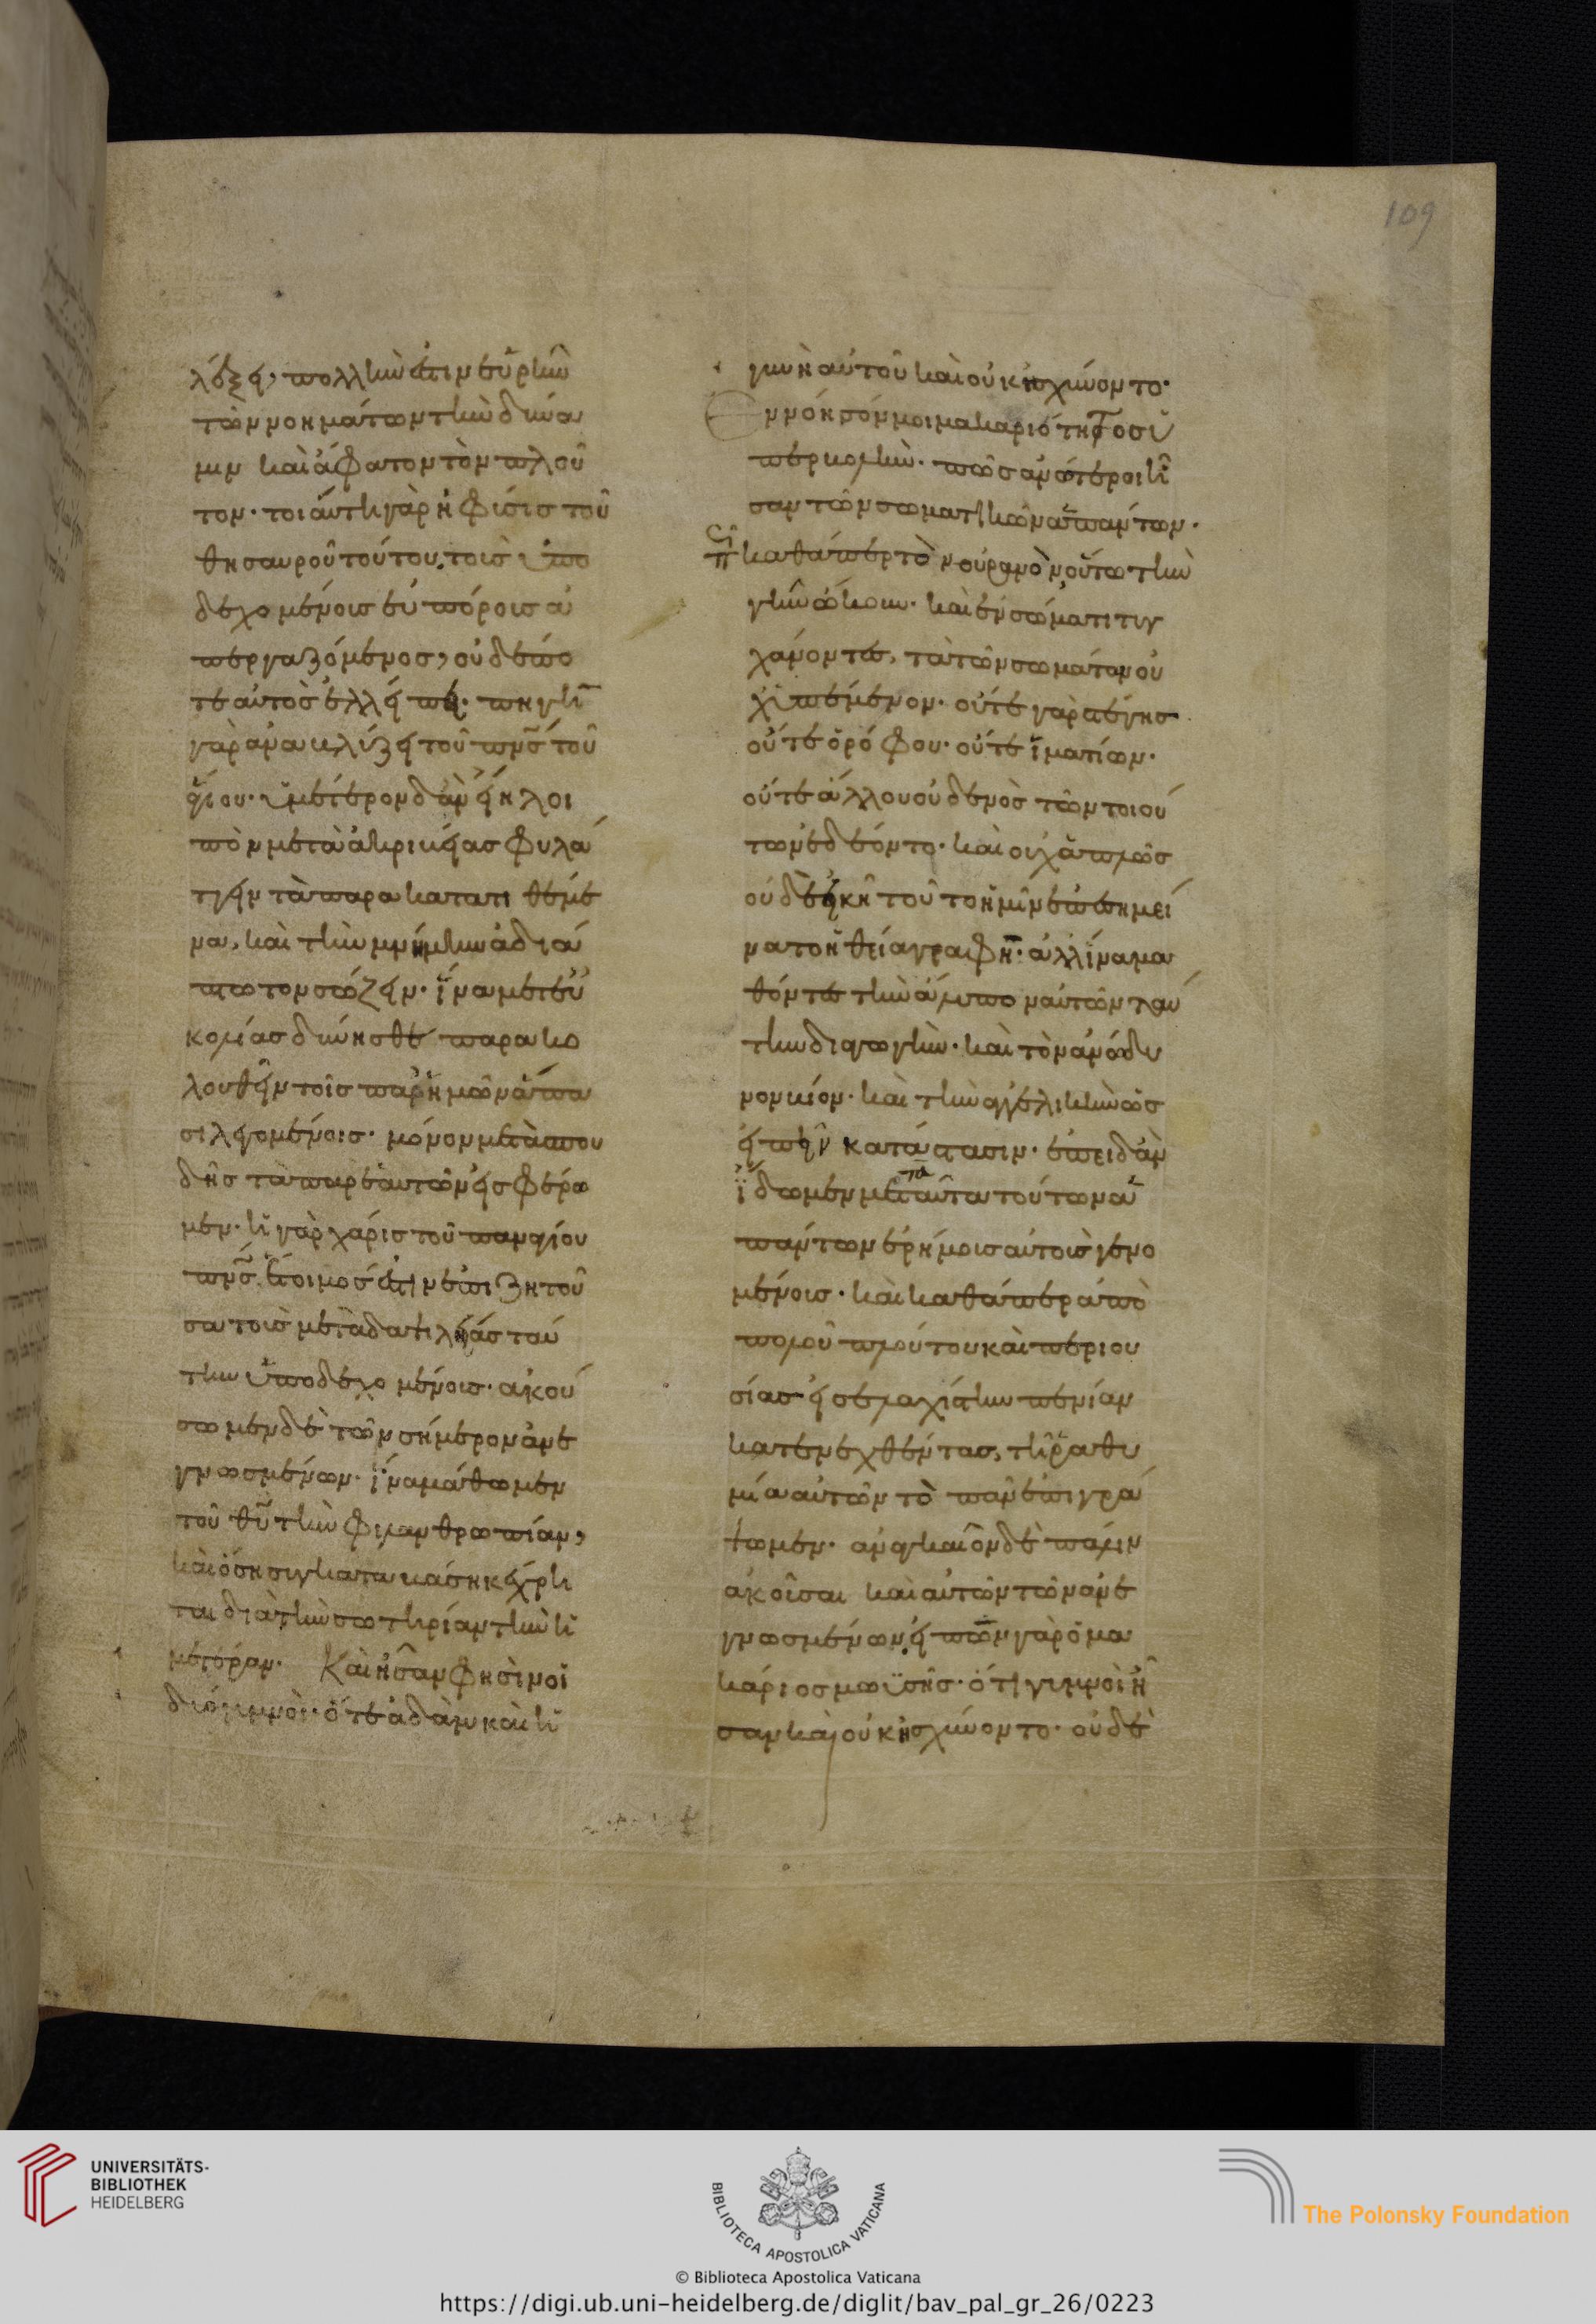 109
λέξει, πολλὴν ἔστιν εὑρεῖν
τῶν νοημάτων τὴν δύνα
μιν καὶ ἄφατον τὸν πλοῦ
τον· τοιαύτη γὰρ ἡ φύσις τοῦ
θησαυροῦ τούτου. τοῖς ὑπο
δεχομένοις εὐπόροις ἀ
περγαζόμενος, οὐδέπο
τε αὐτὸς ἐλλείπει· πηγὴ
γὰρ ἀναβλύζει τοῦ πνς τοῦ
ἁγίου· ὑμέτερον δ' ἂν εἴη λοι
πὸν μετὰ ἀκριβείας φυλά
ττειν τὰ παρακατατιθέμε
να, καὶ τὴν μνήμην ἀδιά
πτωτον σώζειν· ἵνα μετ' εὐ
κολίας δύνησθε παρακο
λουθεῖν τοῖς παρ' ἡμῶν ἅπα
σι λεγομένοις· μόνον μετὰ σπου
δῆς τὰ παρ' ἑαυτῶν εἰσφέρω
μεν· ἡ γὰρ χάρις τοῦ παναγίου
πνς ἕτοιμος ἐστὶν ἐπιζητοῦ
σα τοὺς μετὰ δαψιλείας ταύ
την ὑποδεχομένοις· ἀκού
σωμεν δὲ τῶν σήμερον ἀνε
γνωσμένων· ἵνα μάθωμεν
τοῦ θυ τὴν φιλανθρωπίαν,
καὶ ὅση συγκαταβάσει κέχρη
ται διὰ τὴν σωτηρίαν τὴν ἡ
μετέραν· Καὶ ἦσαν φησὶν οἱ
δύο γυμνοὶ· ὅτε ἀδὰμ καὶ ἡ
γυνὴ αὐτοῦ καὶ οὐκ ἠσχύνοντο·
Ἐννόησόν μοι μακαριότητος ὑ
περβολὴν· πῶς ἀνώτεροι ἦ
σαν τῶν σωματικῶν ἁπάντων·
πῶς καθάπερ τὸν οὐρανὸν οὕτω τὴν
γῆν ᾤκουν· καὶ ἐν σώματι τυγ
χάνοντες, τὰ τῶν σωμάτων οὐ
χ' ὑπέμενον· οὔτε γὰρ στέγης
οὔτε ὀρόφου· οὔτε ἱματίων·
οὔτε ἄλλου οὐδενὸς τῶν τοιού
των ἐδέοντο· καὶ οὐχ ἁπλῶς
οὐδὲ εἰκῆ τοῦτο ἡμῖν ἐπισημεί
νατο ἡ θεία γραφή· ἀλλ' ἵνα μα
θόντες τὴν ἄλυπον αὐτῶν ταύ
την διαγωγὴν· καὶ τὸν ἀνώδυ
νον βίον· καὶ τὴν ἀγγελικὴν ὡς
εἰπεῖν κατάστασιν· ἐπειδὰν
ἴδωμεν μεταταῦτα τούτων ἁ
πάντων ἐρήμους αὐτοὺς γενο
μένοις· καὶ καθάπερ ἀπὸ
πολλοῦ πλούτου καὶ περιου
σίας εἰς ἐλαχίστην πενίαν
κατενεχθέντας, τῇ ῥαθυ
μίᾳ αὐτῶν τὸ πᾶν ἐπιγρά
ψωμεν· ἀναγκαῖον δὲ πάλιν
ἀκοῦσαι καὶ αὐτῶν τῶν ἀνε
γνωσμένων, εἰπὼν γὰρ ὁ μα
κάριος μωϋσῆς· ὅτι γυμνοὶ ἦ
σαν καὶ οὐκ ἠσχύνοντο· οὐδὲ
UNIVERSITÄTS-
BIBLIOTHEK
HEIDELBERG
BIBLIOTECA APOSTOLICA VATICANA
The Polonsky Foundation
© Biblioteca Apostolica Vaticana
https://digi.ub.uni-heidelberg.de/diglit/bav_pal_gr_26/0223